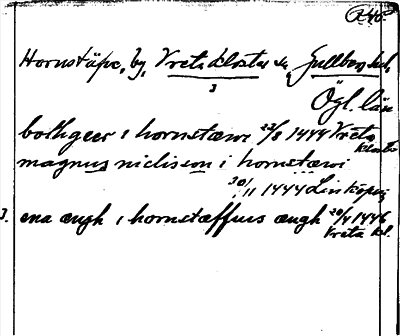 R40
Hornstäpe, by, Vreta Kloster sn, Gullbergs hd,
3
Ögl. län
bothgeer i hornstæwi 22/8 1444 Vreta
kloster
magnus niclisson i hornstæwi
30/11 1444 Linköping
3. ena ængh i hornstæffuis ængh 20/4 1446
Vreta kl.